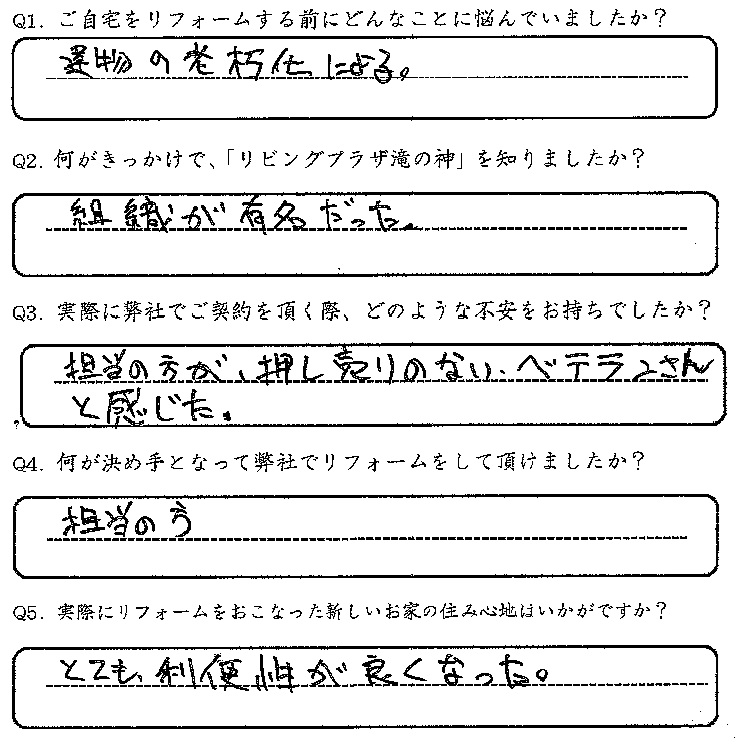 Q1. ご自宅をリフォームする前にどんなことに悩んでいましたか？
建物の老朽化による。
Q2. 何がきっかけで、「リビングプラザ滝の神」を知りましたか？
組織が有名だった。
Q3. 実際に弊社でご契約を頂く際、どのような不安をお持ちでしたか？
担当の方が、押し売りのない、ベテランさん
と感じた。
Q4. 何が決め手となって弊社でリフォームをして頂けましたか？
担当の方
Q5. 実際にリフォームをおこなった新しいお家の住み心地はいかがですか？
とても、利便性が良くなった。